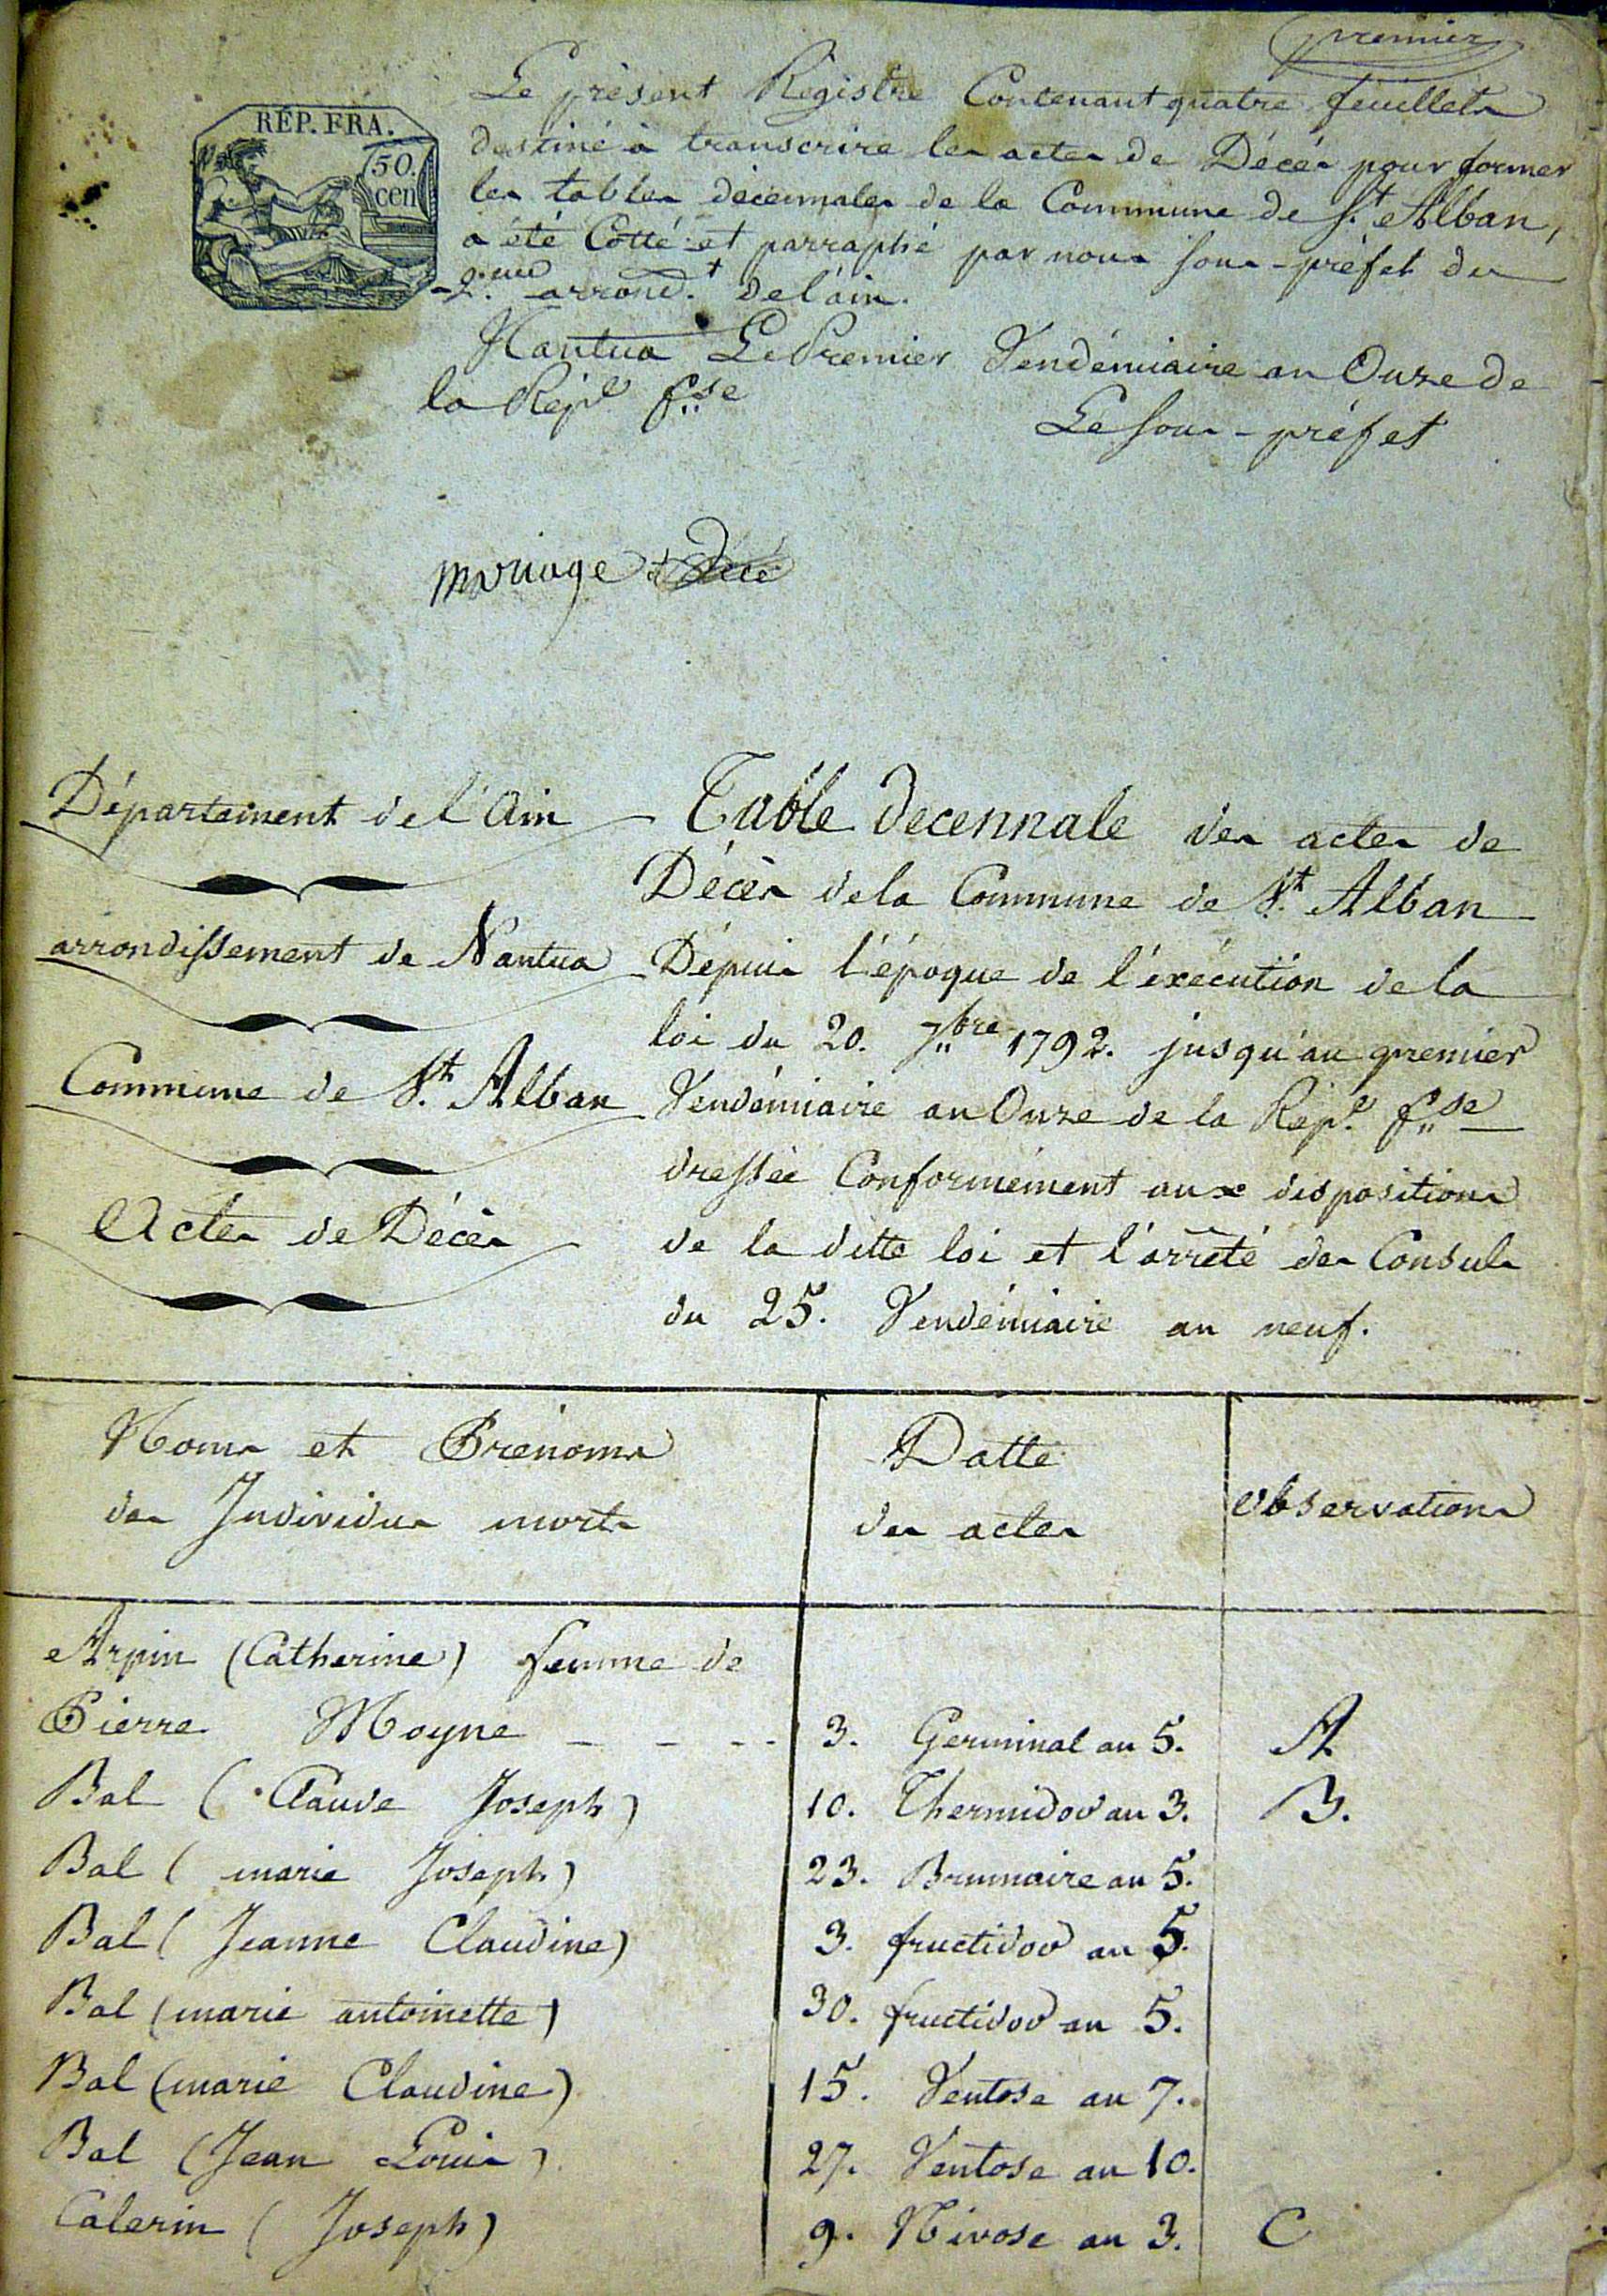 premier
Le présent Régistre Contenant quatre feuillets
destiné à transcrire les actes de Décés pour former
les tables décennales de la Commune de St. Alban,
a été Cotté et parraphé par nous sous-préfet du
2.eme arrond.t de l'ain.
Nantua Le Premier Vendémiaire an Onze de
la Rép.e f.se
Le sous-préfet
RÉP. FRA.
50.
cen
mariage et
Département de l'Ain
arrondissement de Nantua
Commune de St. Alban
Actes de Décès
Table decennale des actes de
Décès de la Commune de St. Alban
Dépuis l'époque de l'éxécution de la
loi du 20. 7bre 1792. jusqu'au premier
Vendémiaire an Onze de la Rép.e f.se
dressée Conformément aux dispositions
de la ditte loi et l'arrêté des Consuls
du 25. Vendémiaire an neuf.
Noms et Prénoms
des Individus morts
Datte
des actes
Observations
Arpin (Catherine) femme de
Pierre Moyne - - - - 3. Germinal an 5. A
Bal (Claude Joseph) 10. Thermidor an 3. B.
Bal (marie Joseph) 23. Brumaire an 5.
Bal (Jeanne Claudine) 3. fructidor an 5.
Bal (marie antoinette) 30. fructidor an 5.
Bal (marie Claudine) 15. Ventose an 7.
Bal (Jean Louis) 27. Ventose an 10.
Calerin (Joseph) 9. Nivose an 3. C